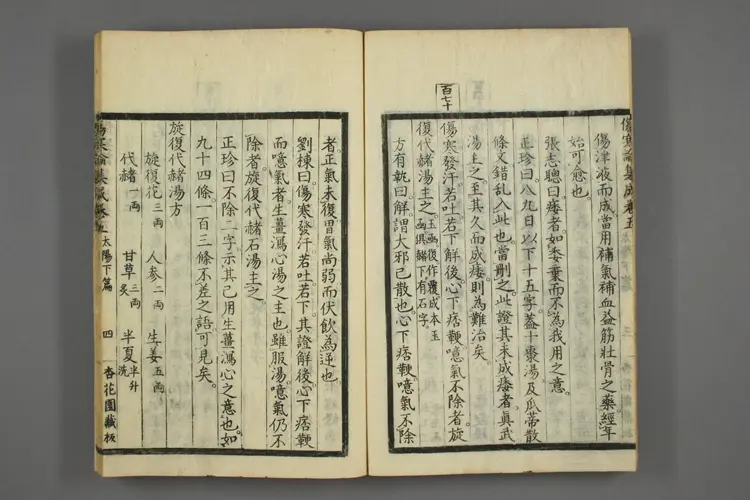 傷寒論集成卷五
傷津液而成當用補氣補血益筋壯骨之藥經年
始可愈也
張志聰曰痿者如委棄而不為我用之意
正珍曰八九日以下十五字蓋十棗湯及瓜蒂散
條文錯乱入此也當刪之此證其未成痿者真武
湯主之至其久而成痿則為難治矣
百七十
傷寒發汗若吐若下解後心下痞鞕噫氣不除者旋
復代赭湯主之玉函復作覆成本玉函赭下有石字
方有執曰解謂大邪已散也心下痞鞕噫氣不除
者正氣未復胃氣尚弱而伏飲為逆也
劉棟曰傷寒發汗若吐若下其證解後心下痞鞕
而噫氣者生薑瀉心湯之主也雖服湯噫氣仍不
除者旋復代赭石湯主之
正珍曰不除二字示其已用生薑瀉心之意也如
九十四條一百三條不差之語可見矣
旋復代赭湯方
旋復花三兩 人參二兩 生姜五兩
代赭一兩 甘草三兩炙 半夏半升洗
傷寒論集成卷五 太陽下篇 四 杏花園藏板